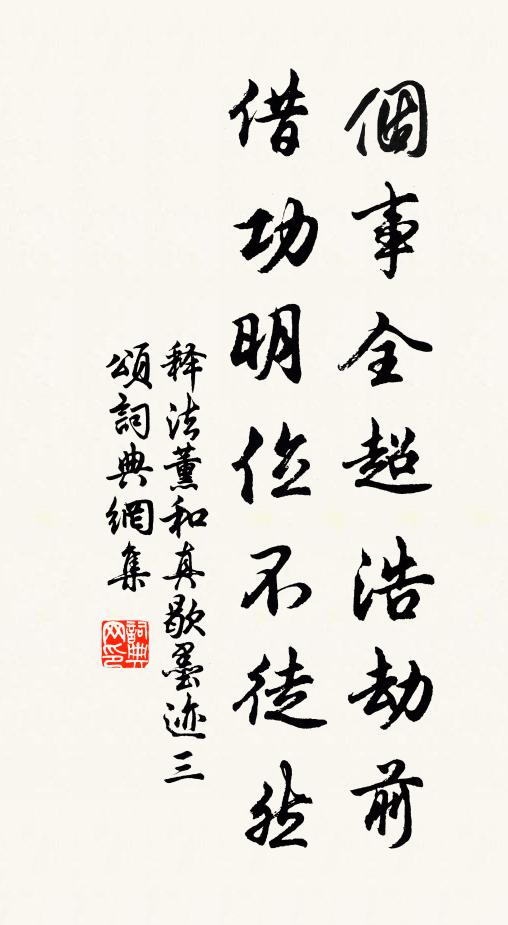 個事全超浩劫前
借功明位不徒然
释法薰和真歇墨迹三
頌詞典網集
詞典网印